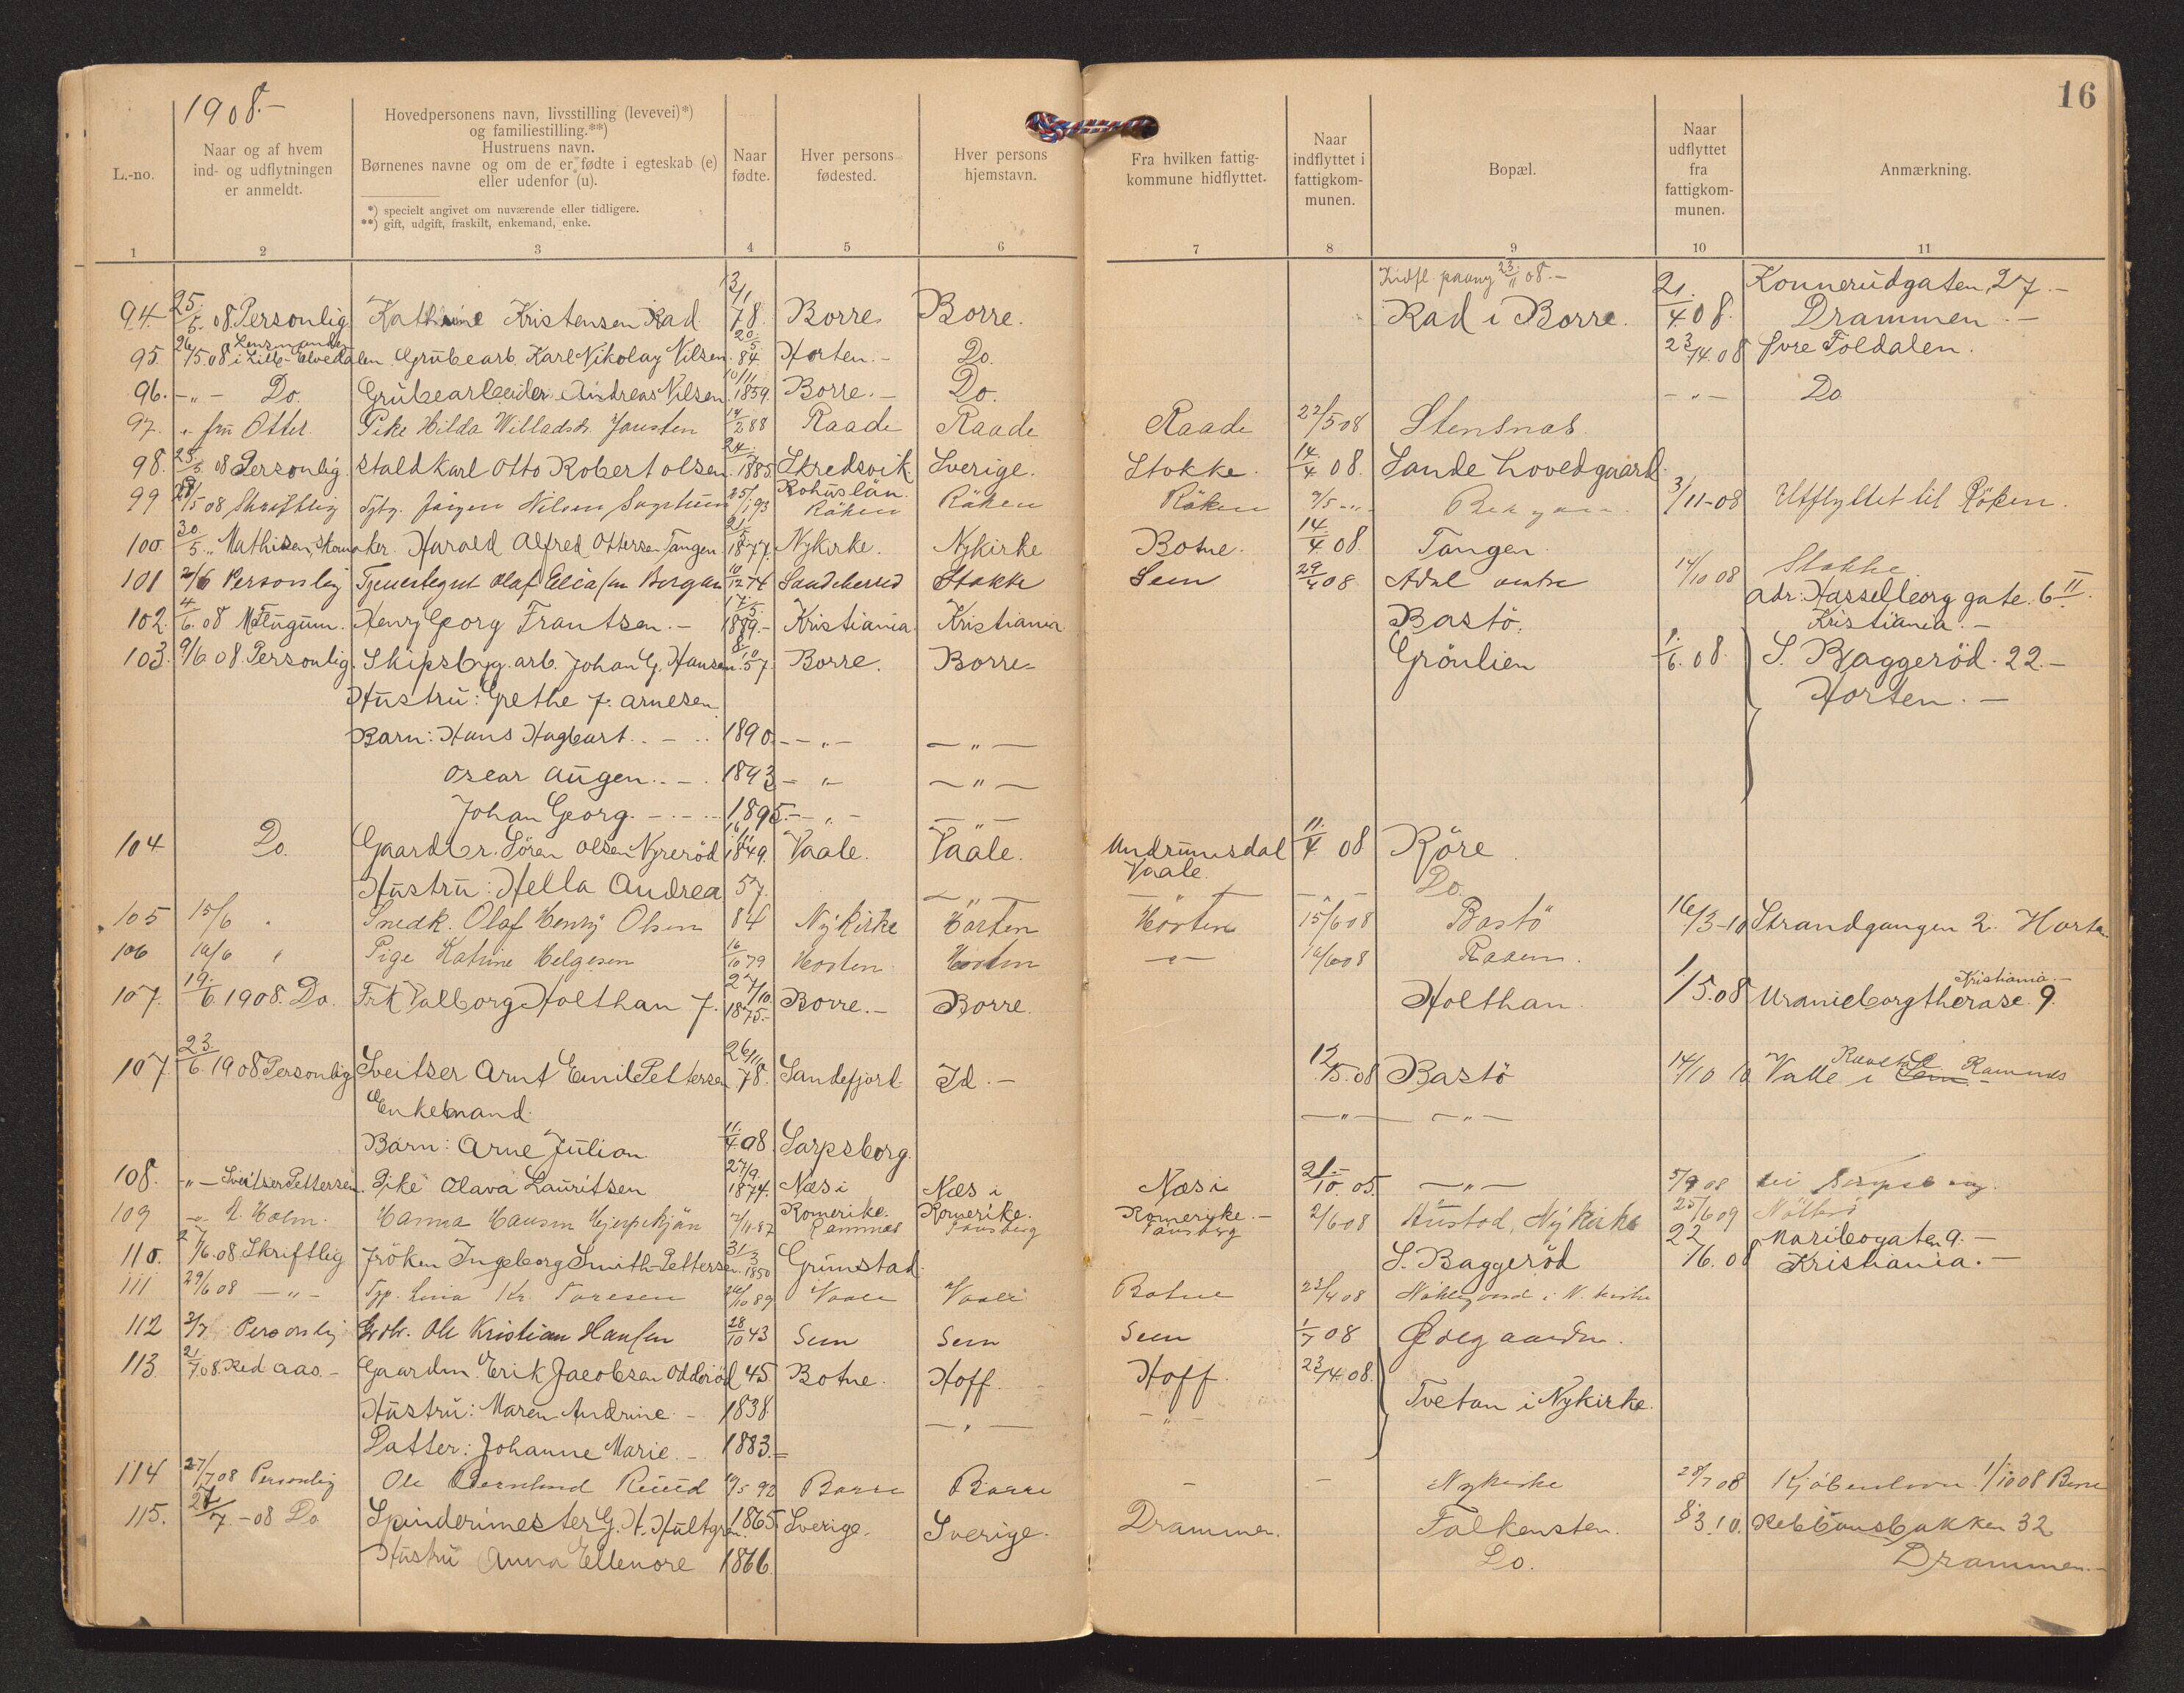 16
1908.-
L.-no.
Naar og af hvem ind- og udflytningen er anmeldt.
Hovedpersonens navn, livsstilling (levevei)*) og familiestilling.**)
Hustruens navn.
Børnenes navne og om de er fødte i egteskab (e) eller udenfor (u).
*) specielt angivet om nuværende eller tidligere.
**) gift, udgift, fraskilt, enkemand, enke.
Naar fødte.
Hver persons fødested.
Hver persons hjemstavn.
Fra hvilken fattigkommune hidflyttet.
Naar indflyttet i fattigkommunen.
Bopæl.
Naar udflyttet fra fattigkommunen.
Anmærkning.
1 2 3 4 5 6 7 8 9 10 11
Indfl. paany 23/11 08.- Konnerudgaten 27.-
94. 25/5. 08 Personlig Kathrine Kristensen Rad 3/11 78. Borre Borre. Rad i Borre. 21./4 08. Drammen.-
95. 26/5.08 Lensmanden i Lille-Elvedalen Grubearb. Karl Nikolay Nilsen 20/5. 84 Horten.- Do. 23/4.08 Øvre Foldalen.
96. -"- Do. Grubearbeider Andreas Nilsen 10/11 1859. Borre.- Do. -"- Do
97. " fru Otter. Pike Hilda Willadsd. Jonsten 14/2 88 Raade Raade Raade 22/5 08 Stensnas.
98. 25/5 08 Personlig. Stald Karl Otto Robert Olsen 24/ 1885. Skredsvik Bohuslän. Sverige. Stokke. 14./4 08. Sande hovedgaard
99 28/5 08 Skriftlig Jörgen Nilsen 25/1 93 Röken Röken Röken 9/5 -"- 3/11-08 Utflyttet til Röken.
100. 30/5 " Mathisen, Skomaker. Harald Alfred Ottersen Tangen 21/5 1877. Nykirke. Nykirke Botne. 14/4. 08. Tangen.
101 2/6 Personlig Tjenestegut Olaf Eliassen Borgan 10/12 74 Sandeherred Stokke Sem 29/4 08 Adal vestre 14/10 08 Stokke.
102. 4/6. 08 M. Fugum. Henry Georg Frantsen.- 17/5. 1889.- Kristiania. Kristiania Bastö. adr: Hasselborg gate. 6 II. Kristiania.-
103. 9/6. 08. Personlig. Skipsbyg. arb. Johan G. Hansen 8/10 57. Borre. Borre- Grönlien 1./6. 08. S. Baggeröd. 22.-
Hustru: Grethe f. Arnesen Horten.-
Barn: Hans Hagbart. 1890. -"- -"-
Oscar Augen. 1893 -"- -"-
Johan Georg. 1895. -"- -"-
104. Do. Gaardbr. Sören Olsen Nyreröd 16/11 1849. Vaale. Vaale. Undrumsdal Vaale. 11./4 08 Röre.
Hustru: Hella Andrea 57. -"- -"- -"- Do.
105 15/6 " Snedk. Olaf Henry Olsen 84 Nykirke Horten Horten 15/6 08 Bastö 16/3-10 Strandgangen 2. Horten
106 16/6 " Pige Katrine Helgesen 16/10 79 Horten Horten -"- 16/6 08
107. 19./6. 1908. Do. Frk Valborg Holthan f. 27/10. 1875.- Borre.- Borre. Holthan. 1./5.08 Kristiania.- Uranieborgtherase 9.
107. 23./6. 1908 Personlig Sveitser Arnt Emil Pettersen 26/11 78. Sandefjord. Id.- 12./5.08 Bastö 14/10 10 Valle i Ramnes
Enkemand. -"- -"-
Barn: Arne Julian. 11./4 08. Sarpsborg.
108. -"- Sveitser Pettersen. Pike Olava Lauritsen 27/9. 1874. Næs i Romerike. Næs i Romerike. Næs i Romerike.- 21./10. 05. -"- 5/9 08
109 -"- Holm. Hanna Hansen 87 Ramnes Tønsberg Tønsberg 2/6 08 Hustod, Nykirke 25/6 09 Nötterö
110. 27/6.08 Skriftlig Fröken Ingeborg Smith-Pettersen 31/3 1850 Grimstad. S. Baggeröd 22/6. 08 Maribogaten 9.- Kristiania.-
111 29/6 08 -"- Tjp. Lina Kr. Toresen 26/10 89 Vaale Vaale Botne 23/4 08
112 3/7 Personlig Grdbr. Ole Kristian Hansen 28/10 43 Sem Sem Sem 1/7 08 Ødegaarden.
113. 21/7.08. Red aas.- Gaardm Erik Jacobsen Odderöd 45 Botne. Hoff. Hoff. 23/4.08. Tvetan i Nykirke.
Hustru: Maren Andrine.- 1838 -"- -"-
Datter: Johanne Marie.- 1883.=
114 27/7 08 Personlig Ole Bernhard Ruud 19/5 92 Borre Borre - - Nykirke 28/7 08 Kjöbenhavn 1/10 08 Borre
115. 27/7.-08 Do Spinderimester G. H. Hultgren. 1865. Sverige. Sverige. Drammen. Falkensten. 8/3.10. 32
Hustru Anna Ellenore 1866. Do. Drammen.-